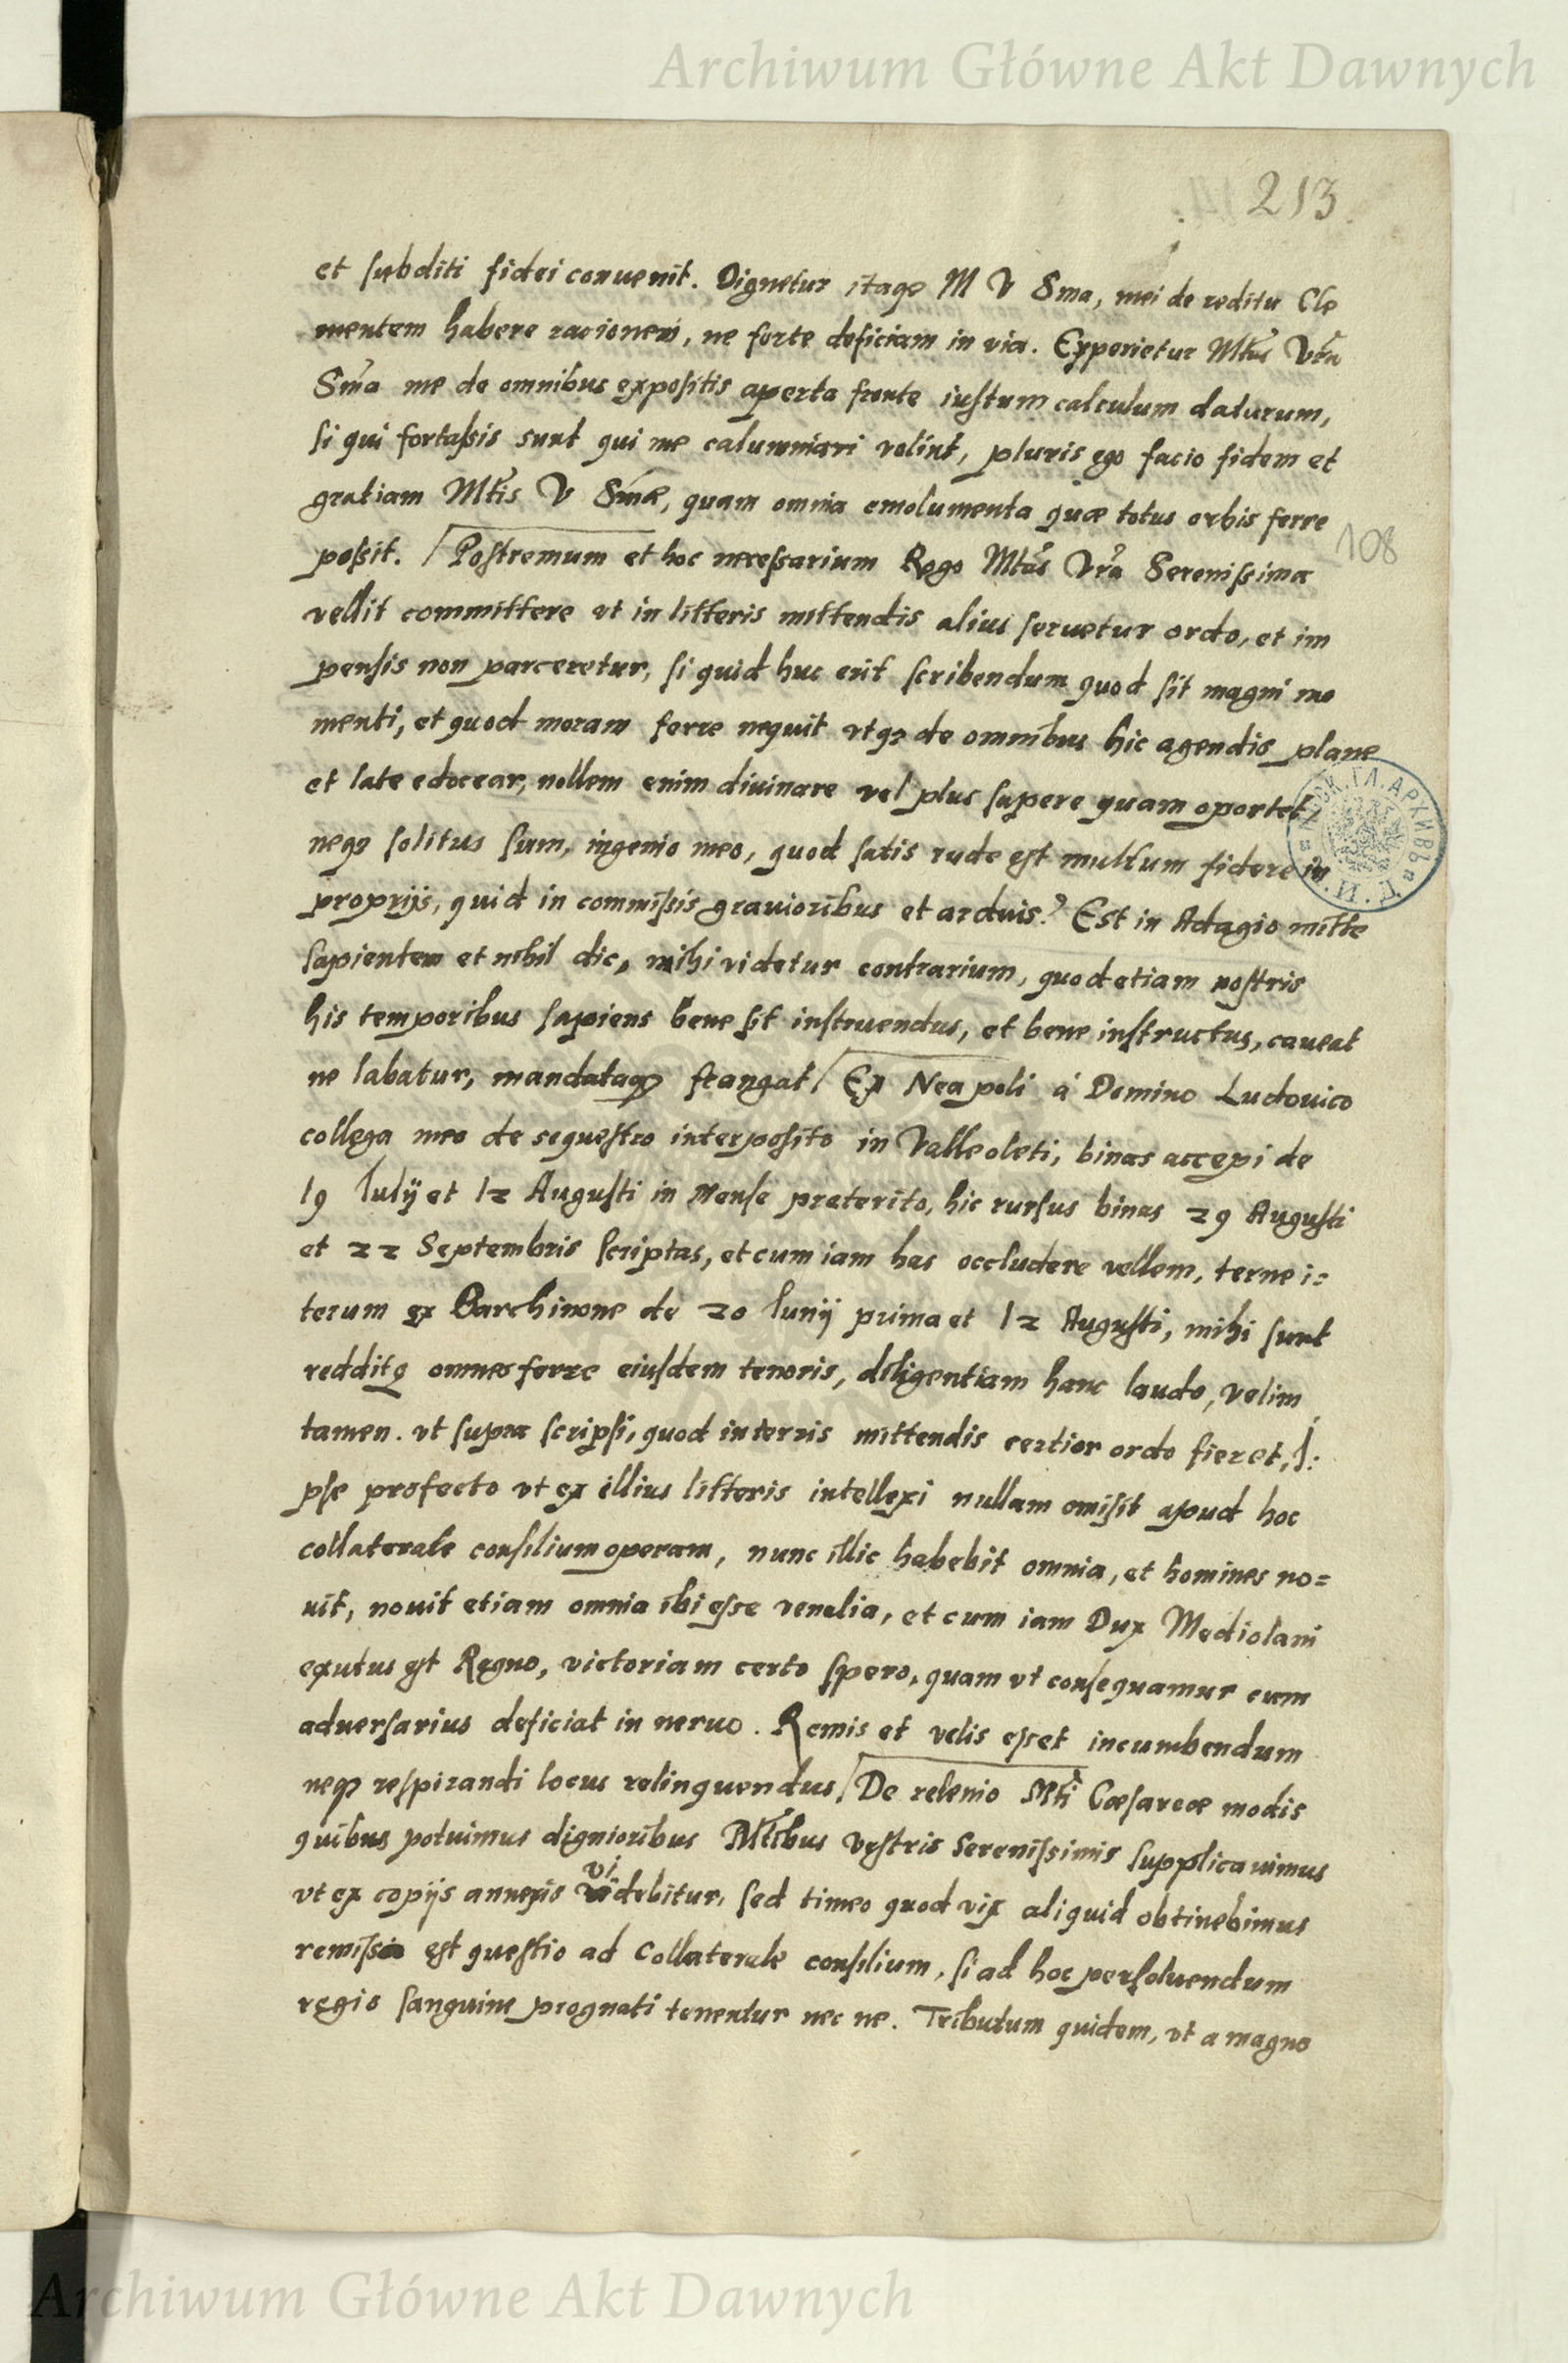 Archiwum Główne Akt Dawnych
213
et subditi fidei conuenit. Dignetur itaqꝫ M V Sma, mei de reditu Cle
mentem habere racionem, ne forte deficiam in via. Experietur Mtas Vra
Sma me de omnibus expositis aperta fronte iustum calculum daturum,
si qui fortassis sunt qui me calumniari velint, pluris ego facio fidem et
gratiam Mtis V Smæ, quam omnia emolumenta quæ totus orbis ferre
possit. / Postremum et hoc necessarium Rego Mtas Vra Serenissima
108
vellit committere vt in litteris mittendis alius seruetur ordo, et im
pensis non parceretur, si quid huc erit scribendum quod sit magni mo
menti, et quod moram ferre nequit vtqꝫ de omnibus hic agendis plane
et late edocear, nollem enim diuinare vel plus sapere quam oportet,
neqꝫ solitus sum, ingenio meo, quod satis rude est multum fidere in
proprijs, quid in commissis grauioribus et arduis? Est in Adagio mitte
sapientem et nihil dic, mihi videtur contrarium, quod etiam nostris
his temporibus sapiens bene sit instruendus, et bene instructus, caueat
ne labatur, mandataqꝫ frangat / Ex Neapoli á Domino Ludouico
collega meo de sequestro interposito in Valleoleti, binas accepi de
19 Iulij et 12 Augusti in Mense preterito, hic rursus binas 29 Augusti
et 22 Septembris scriptas, et cum iam has occludere vellem, terne i=
terum ex Barchinone de 20 Iunij prima et 12 Augusti, mihi sunt
redditę omnes ferre eiusdem tenoris, diligentiam hanc laudo, velim
tamen. vt supra scripsi, quod in terris mittendis certior ordo fieret, I:
pse profecto vt ex illius litteris intellexi nullam omisit apud hoc
collaterale consilium operam, nunc illic habebit omnia, et homines no=
uit, nouit etiam omnia ibi esse venalia, et cum iam Dux Mediolani
exutus est Regno, victoriam certo spero, quam vt consequamur cum
aduersarius deficiat in neruo. Remis et velis esset incumbendum
neqꝫ respirandi locus relinquendus / De relenio Mti Cæsareæ modis
quibus potuimus dignioribus Mtibus vestris Serenissimis supplicauimus
vt ex copijs annexis videbitur, sed timeo quod vix aliquid obtinebimus
remissa est questio ad Collaterale consilium, si ad hoc persoluendum
regio sanguine prognati tenentur nec ne. Tributum quidem, vt a magno
Archiwum Główne Akt Dawnych